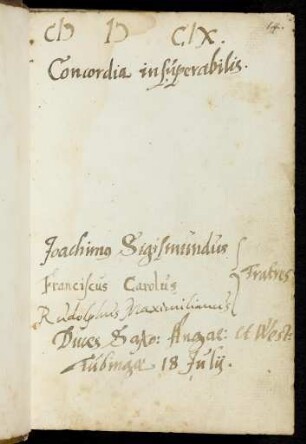 14.
CIↃ IↃ CIX.
Concordia insuperabilis.
Joachimus Sigismundus
Franciscus Carolus
Rudolphus Maximilianus
Fratres
Duces Saxo: Angar: et West:
Tubingæ 18 July.